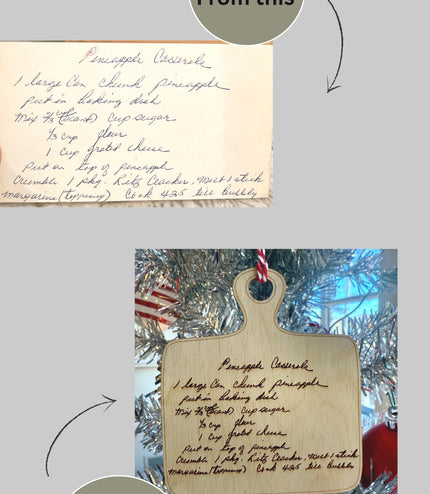 From this
Pineapple Casserole
1 large Can chunk pineapple
put in baking dish
Mix ⅔ (scant) cup sugar
⅓ cup flour
1 cup grated cheese
put on top of pineapple
Crumble 1 pkg. Ritz Cracker, melt 1 stick
margarine (topping) Cook 425 till bubbly
Pineapple Casserole
1 large Can chunk pineapple
put in baking dish
Mix ⅔ (scant) cup sugar
⅓ cup flour
1 cup grated cheese
put on top of pineapple
Crumble 1 pkg. Ritz Cracker, melt 1 stick
margarine (topping) Cook 425 till bubbly